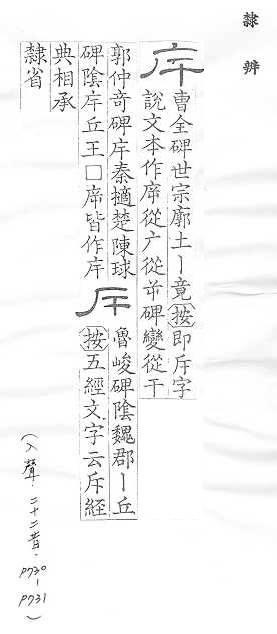 隸 辨
㡿 曹全碑世宗廓土丨竟按即斥字
說文本作㡿從广從屰碑變從干
郭仲奇碑㡿秦擿楚陳球
碑陰㡿丘王□㡿皆作㡿
厈 魯峻碑陰魏郡丨丘
按五經文字云斥經
典相承
隸省
（入聲·二十二昔·P730-P731）